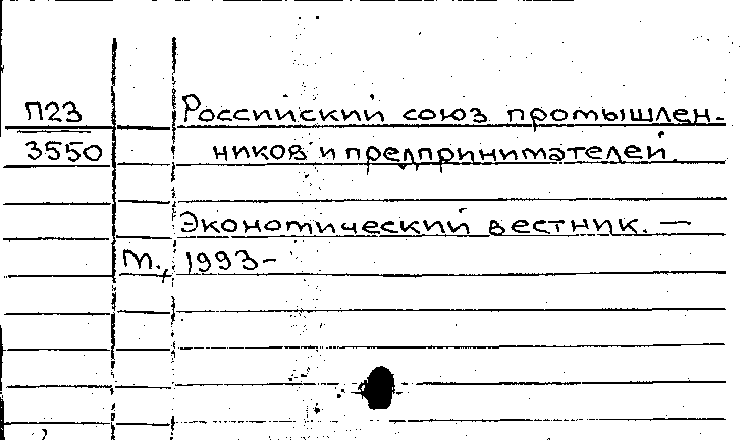 П23 Российский союз промышлен-
3550 ников и предпринимателей.
Экономический вестник. —
М., 1993-